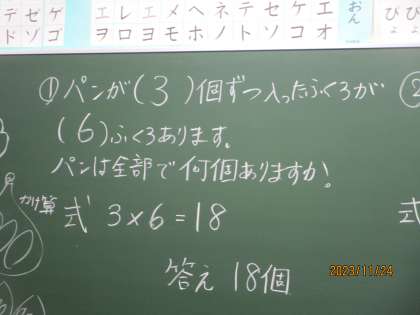 デゼゲエレエメヘネテセケエ
ドゾゴヲロヨモホノトソコオ
おん
びょ
ぴょ
①パンが(3)個ずつ入ったふくろが
(6)ふくろあります。
パンは全部で何個ありますか!
かけ算
式 3×6=18
答え 18個
②
式
2023/11/24